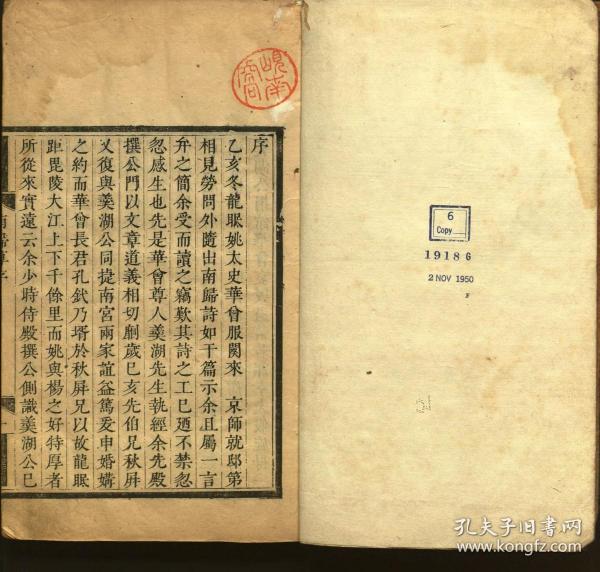 序
乙亥冬龍眠姚太史華曾服闋來　京師就邸第
相見勞問外隨出南歸詩如干篇示余且屬一言
弁之簡余受而讀之竊歎其詩之工已迺不禁忽
忽感生也先是華曾尊人羹湖先生執經余先殿
撰公門以文章道義相切劘歲己亥先伯兄秋屏
又復與羹湖公同捷南宮兩家誼益篤爰申婚媾
之約而華曾長君孔鈫乃壻於秋屏兄以故龍眠
距毘陵大江上下千餘里而姚與楊之好特厚者
所從來實遠云余少時侍殿撰公側識羹湖公已
南歸草序
一
6
Copy
19186
2 NOV 1950
孔夫子旧书网
www.kongfz.com